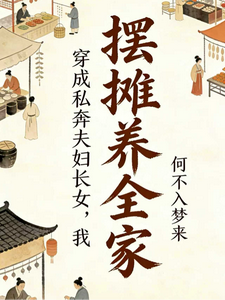 穿成私奔夫妇长女，我
摆摊养全家
何不入梦来